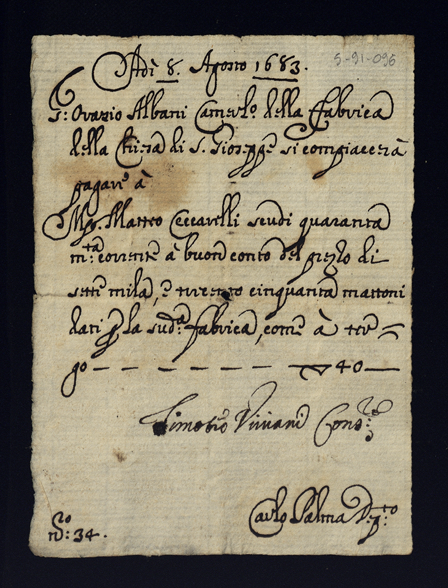 Adi 8. Agosto 1683.
5-91-096
S.r Orazio Albani Camerl.o della Fabrica
della Chiesa di S. Gioseppe si compiacerà
pagare à
M.ro Matteo Ceccarelli scudi quaranta
m.ta corrente à buon conto del prezzo di
sette mila, e trecento cinquanta mattoni
dati p la sud.a fabrica, come à ter=
go — — — — — — — ▽ 40 —
Timoteo Viviani Cons.re
Carlo Palma D.to
N.ro: 34.